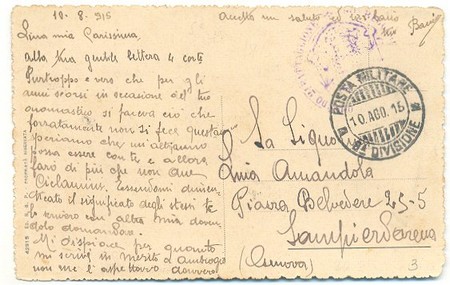 10-8-915
Lina mia Carissima,
alla tua gentile lettera e corte
Purtroppo è vero che per gli
anni scorsi in occasione del tuo
onomastico si faceva ciò che
forzatamente non si fece quest'anno
speriamo che un altr'anno
possa essere con te e allora
farò di più che non due
Ciclamini. Essendomi dimen-
ticato il significato degli stessi te
lo scriverò un altra mia doven-
dolo domandare.
Mi dispiace per quanto
mi scrive in merito d'Ambrogio
non me l'aspettavo davvero
Accetta un saluto ed un bacio
tuo
POSTA MILITARE
10. AGO. 15
DIVISIONE
La Sig.na
Lina Amandola
Piazza Belvedere 25-5
Sampierdarena
(Genova)
3